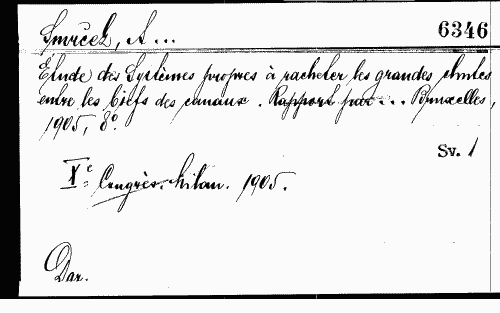 Smrček, A...
6346
Étude des Systèmes propres à racheter les grandes chutes
entre les biefs des canaux. Rapport par... Bruxelles,
1905, 8°.
Sv. 1
Xe Congrès. Milan. 1905.
Dar.